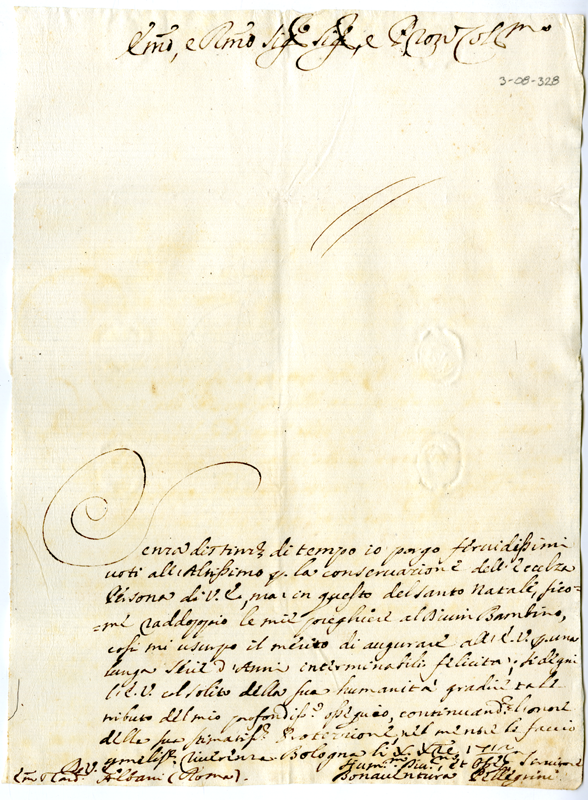 Em̃o, e Rm̃o Sigr͠e Sigr͠e, e Prõn Colmo
3-08-328
Senza distinz͠e di tempo io porgo feruidissimi
uoti all'Altissimo p. la conseruazione dell'Eccelsa
Persona di V. E., ma in questo del Santo Natale, sico=
=me raddoppio le mie preghiere al Diuin Bambino,
cosi mi usurpo il merito di augurare all'E. V. p. una
lunga Serie d'Anni interminabili felicità; si degni
l'E. V. col solito della sua humanità gradire tale
tributo del mio profondiss.o ossequio, continuand. l'onore
della sua stimatiss.a Protezione, nel mentre le faccio
umeliss.a riuerenza Bologna li
Di V. E.
Em.o Card. Albani (Roma).
Hum.mo Diu.mo et Obl.mo Seruitore
Bonauentura Pellegrini